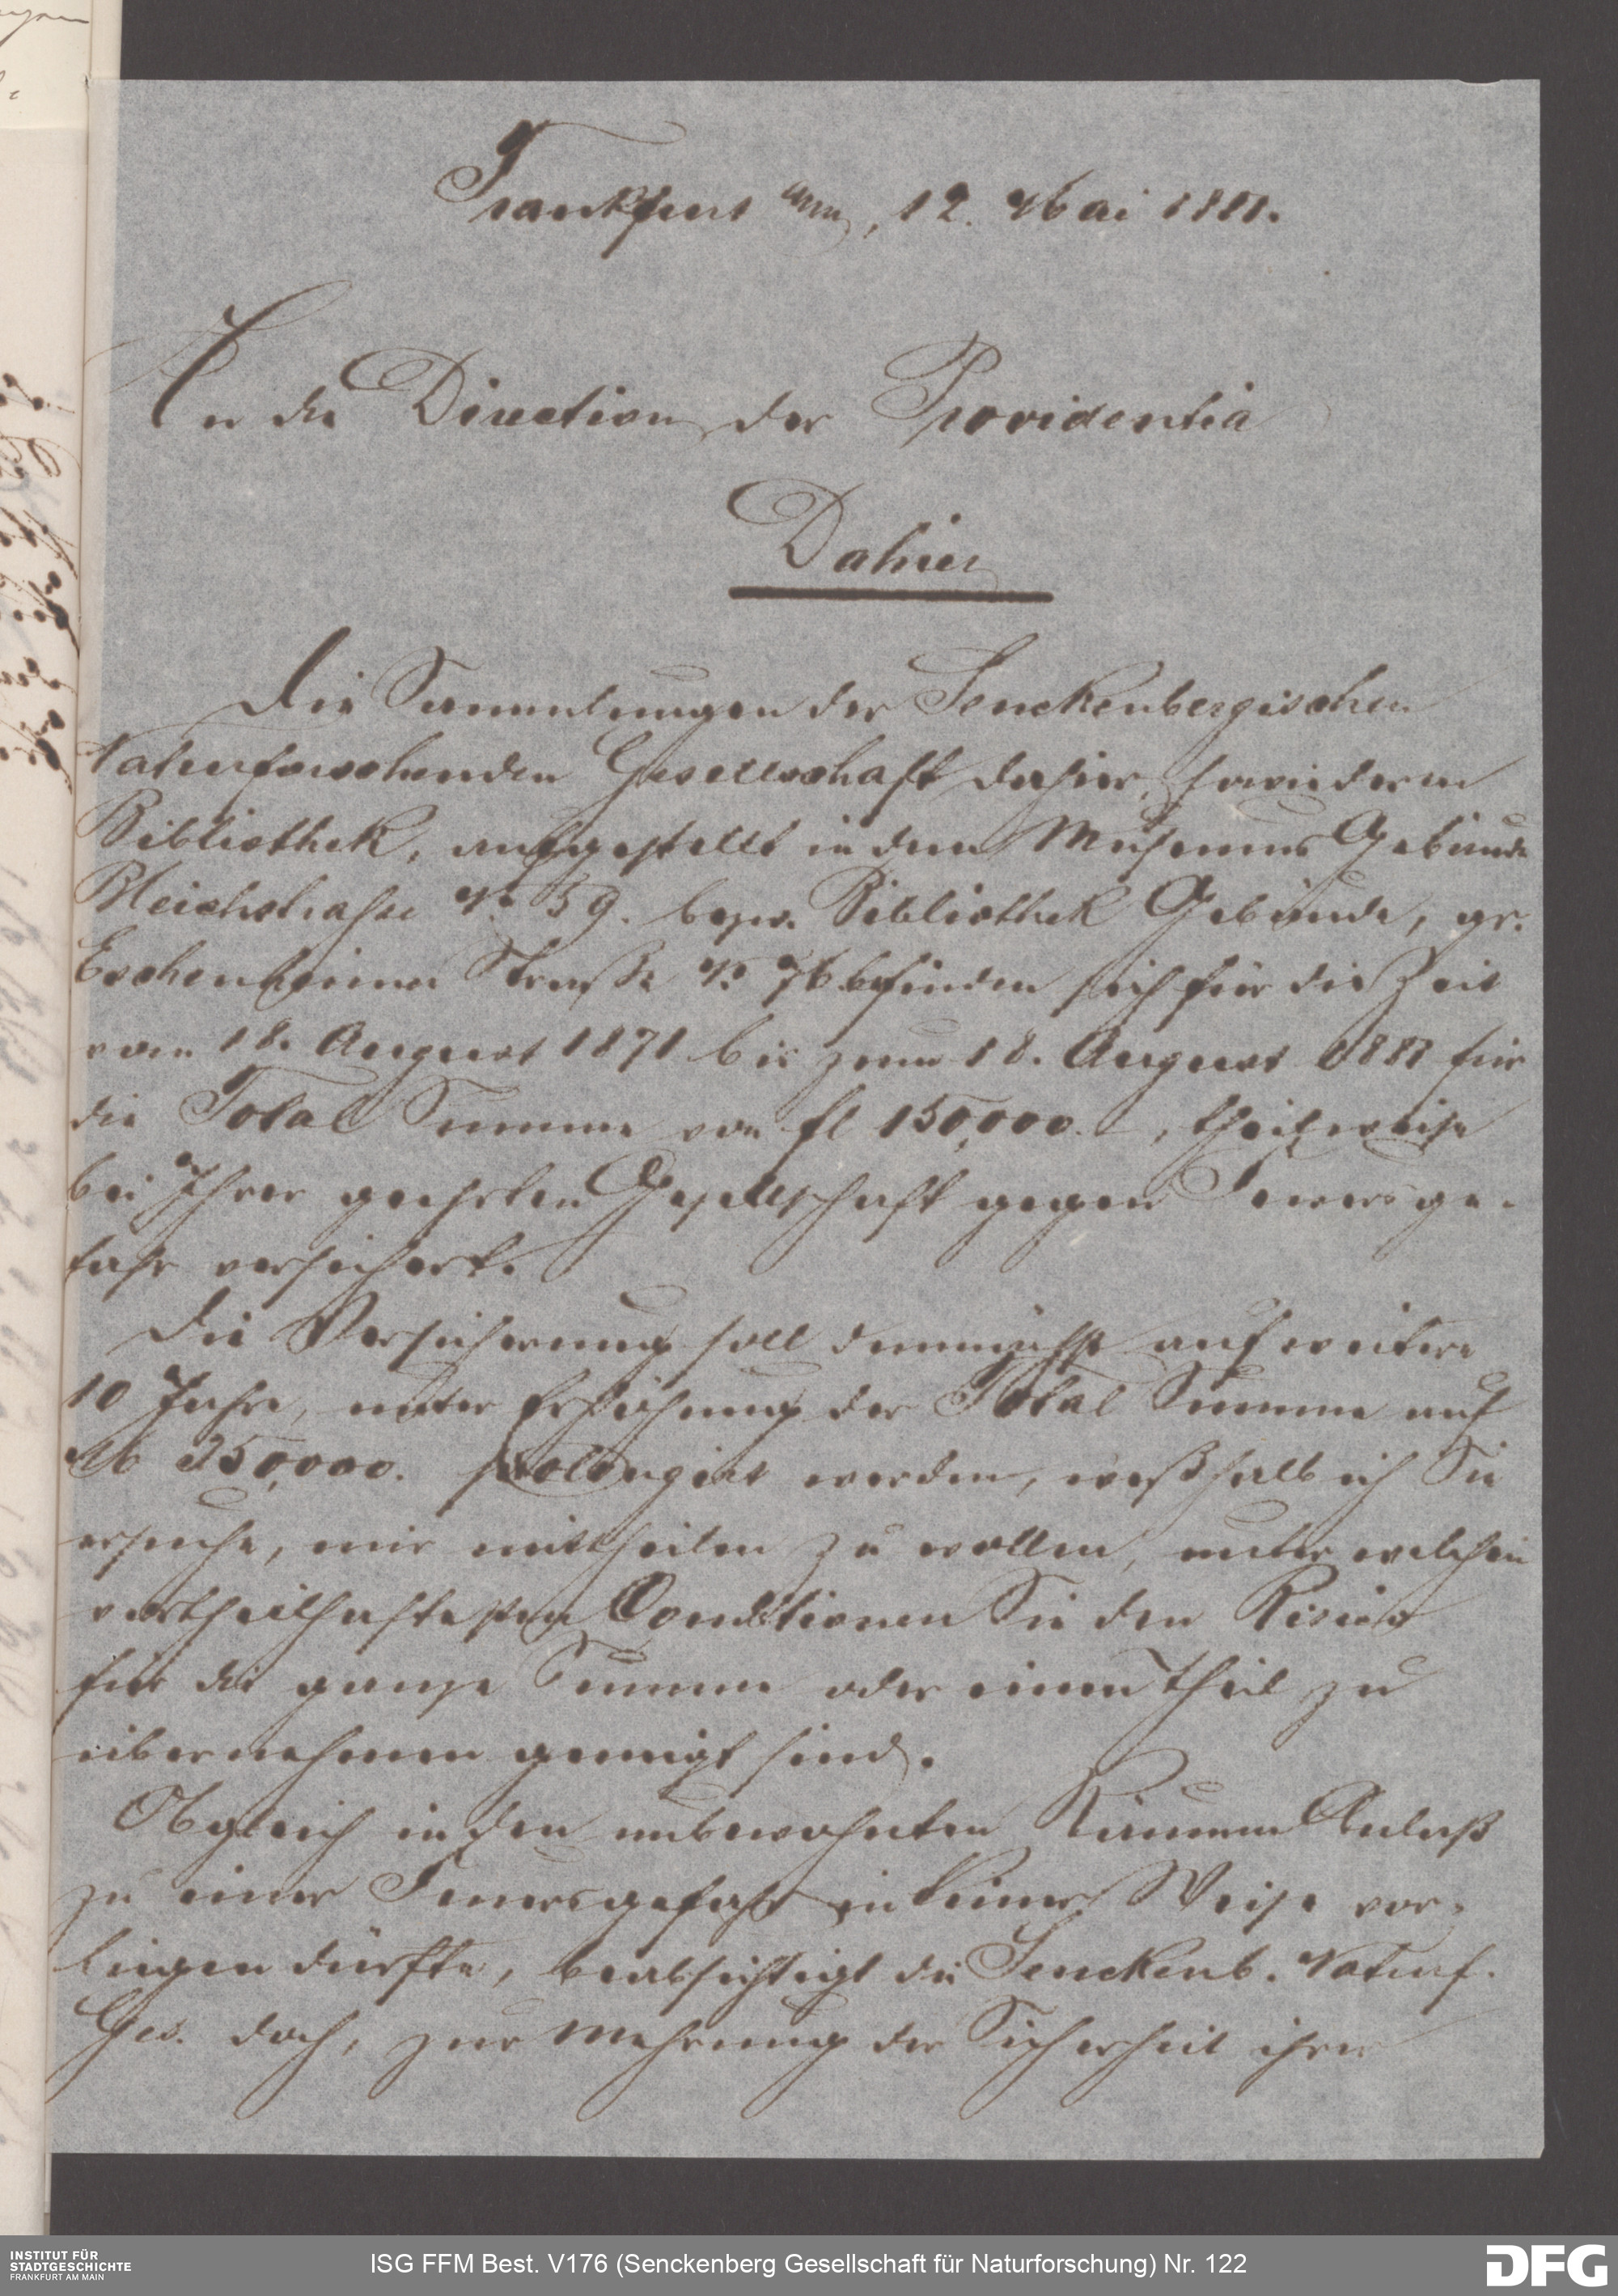 Frankfurt a/m, 12. Mai 1881.
An die Direction der Providentia
Dahier
Die Sammlungen der Senckenbergischen
Naturforschenden Gesellschaft dahier, sowie deren
Bibliothek, aufgestellt in dem Museums Gebäude
Bleichstrasse No 59. bezw. Bibliothek Gebäude, gr.
Eschenheimer Straße No 76 befinden sich für die Zeit
vom 18. August 1871 bis zum 18. August 1881 für
die Total Summe von fl 150,000. –, theilweise
bei Ihrer geehrten Gesellschaft gegen Feuersge-
fahr versichert.
Die Versicherung soll demnächst auf weitere
10 Jahre, unter Erhöhung der Total Summe auf
M 350,000. prolongirt werden, weßhalb ich Sie
ersuche, mir mittheilen zu wollen, unter welchen
vortheilhaftesten Conditionen Sie den Risico
für die ganze Summe oder einen Theil zu
übernehmen geneigt sind.
Obgleich in den unbewohnten Räumen Anlaß
zu einer Feuersgefahr in keiner Weise vor-
liegen dürfte, beabsichtigt die Senckenb. Naturf.
Ges. doch, zur Mehrung der Sicherheit ihrer
INSTITUT FÜR
STADTGESCHICHTE
FRANKFURT AM MAIN
ISG FFM Best. V176 (Senckenberg Gesellschaft für Naturforschung) Nr. 122
DFG